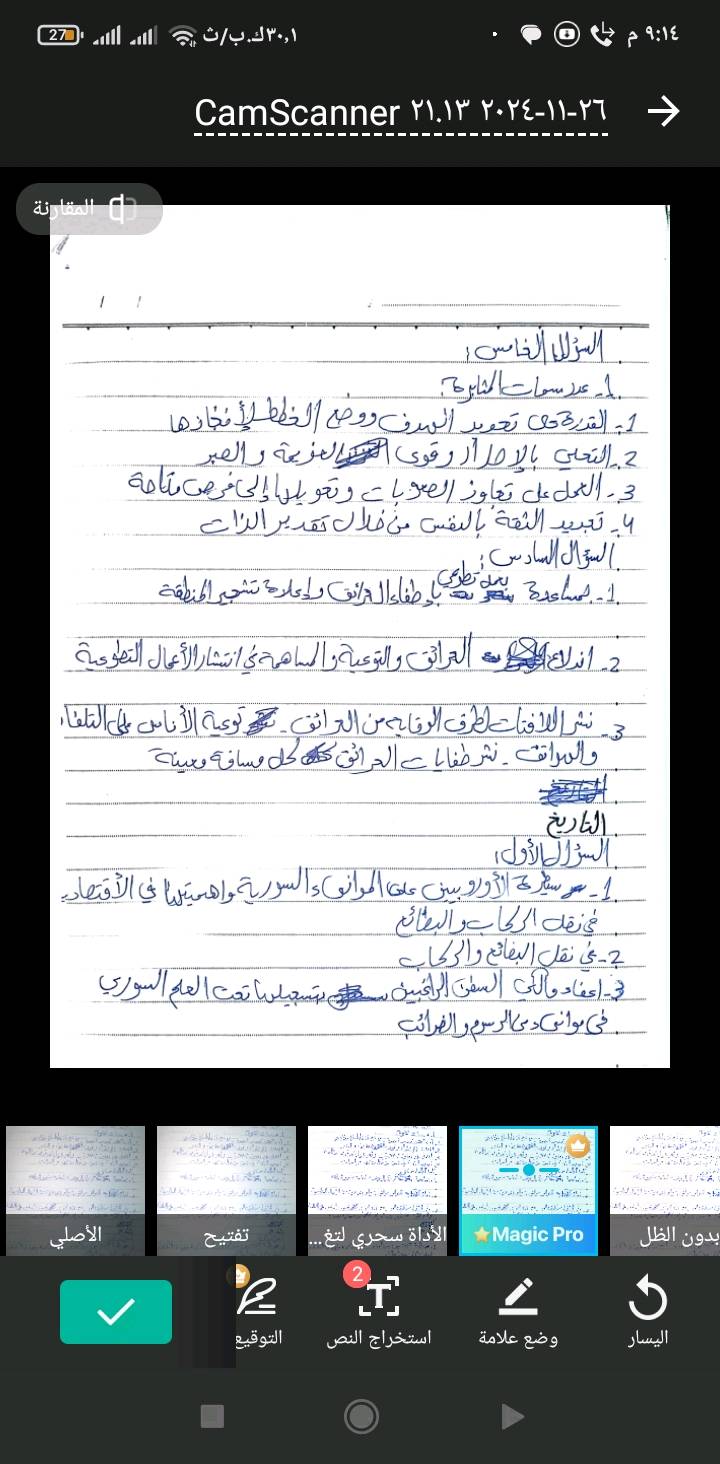 ٣٠,١ك.ب/ث
27
٩:١٤ م
CamScanner ٢٠٢٤-١١-٢٦ ٢١.١٣
المقارنة
السؤال الخامس:
1- عدد سمات المثابرة:
1- القدرة على تحديد الهدف ووضع الخطط لأنجازها
2- التحلي بالإصرار وقوى العزيمة والصبر
3- العمل على تجاوز الصعوبات وتحويلها إلى فرص متاحة
4- تجديد الثقة بالنفس من خلال تقدير الذات
السؤال السادس:
بعمل تطوعي
1- مساعدة بإطفاء الحرائق وإعادة تشجير المنطقة
2- اندلاع الحرائق والتوعية والمساهمة في انتشار الأعمال التطوعية
3- نشر اللافتات لطرق الوقاية من الحرائق - توعية الأناس على التلفاز
والهواتف - نشر طفايات الحرائق كل مسافة معينة
التاريخ
السؤال الأول:
1- سيطرة الأوروبيين على الموانئ السورية واهميتها في الأقتصاد
في نقل الركاب والبضائع
2- في نقل البضائع والركاب
3- إعفاء مالكي السفن الراغبين بتسجيلها تحت العلم السوري
في موانئ من الرسوم والضرائب
الأصلي
تفتيح
الأداة سحري لتغ...
Magic Pro
بدون الظل
التوقيع
2
استخراج النص
وضع علامة
اليسار